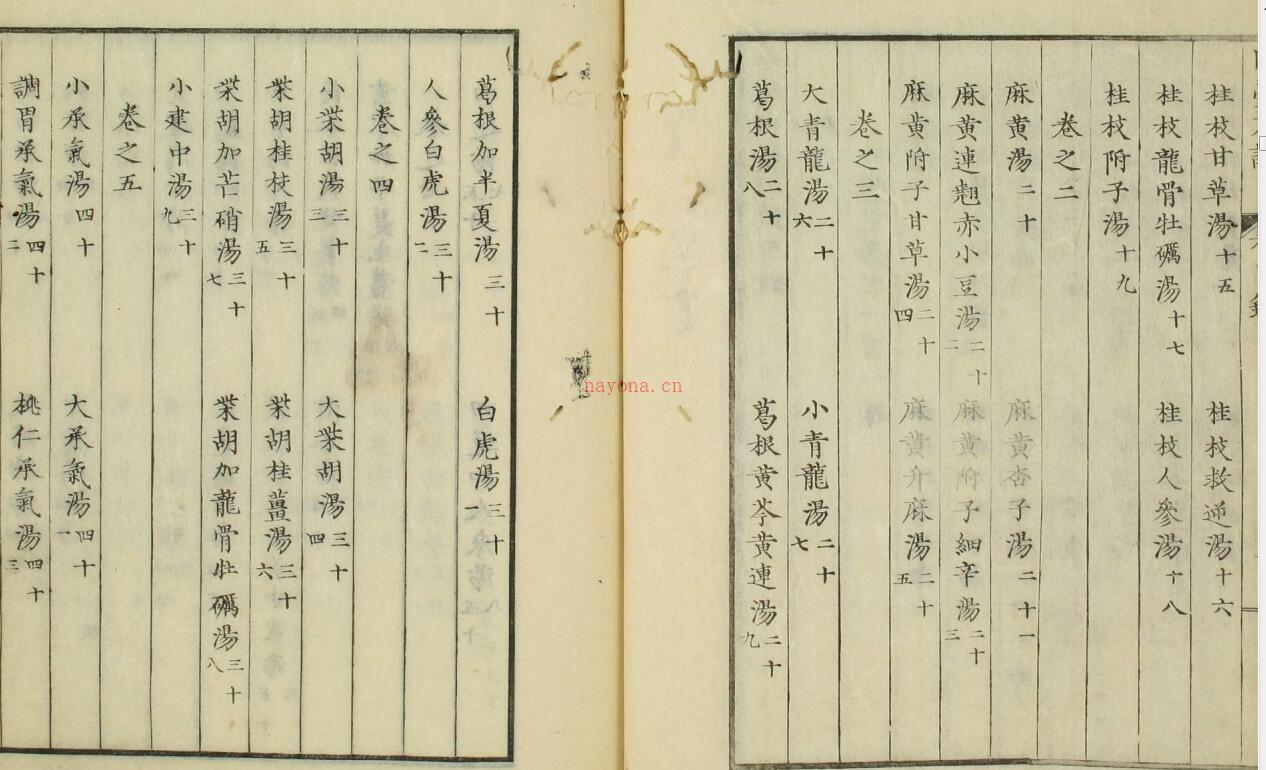 桂枝甘草湯十五 桂枝救逆湯十六
桂枝龍骨牡礪湯十七 桂枝人參湯十八
桂枝附子湯十九
卷之二
麻黄湯二十 麻黄杏子湯二十一
麻黄連翹赤小豆湯二十二 麻黄附子細辛湯二十三
麻黄附子甘草湯二十四 麻黄升麻湯二十五
卷之三
大青龍湯二十六 小青龍湯二十七
葛根湯二十八 葛根黄芩黄連湯二十九
葛根加半夏湯三十 白虎湯三十一
人參白虎湯三十二
卷之四
小柴胡湯三十三 大柴胡湯三十四
柴胡桂枝湯三十五 柴胡桂薑湯三十六
柴胡加芒硝湯三十七 柴胡加龍骨牡礪湯三十八
小建中湯三十九
卷之五
小承氣湯四十 大承氣湯四十一
調胃承氣湯四十二 桃仁承氣湯四十三
nayona.cn